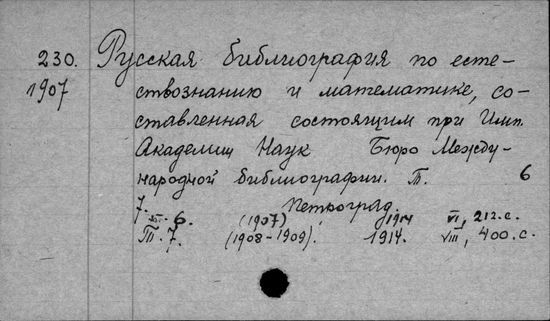 230. Русская библиография по есте-
1907 ствознанию и математике, со-
ставленная состоящим при Имп.
Академии Наук Бюро Между-
народной библиографии. Т. 6
7. Петроград.
Т. 6. (1907), 1914 VI, 212.с.
Т. 7. (1908-1909). 1914. VIII, 400.с.